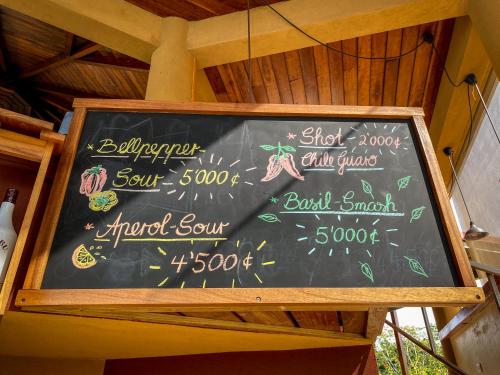 * Bellpepper-
Sour 5'000 ¢
* Aperol-Sour
4'500 ¢
* Shot- 2'000 ¢
Chile Guaro
* Basil-Smash
5'000 ¢